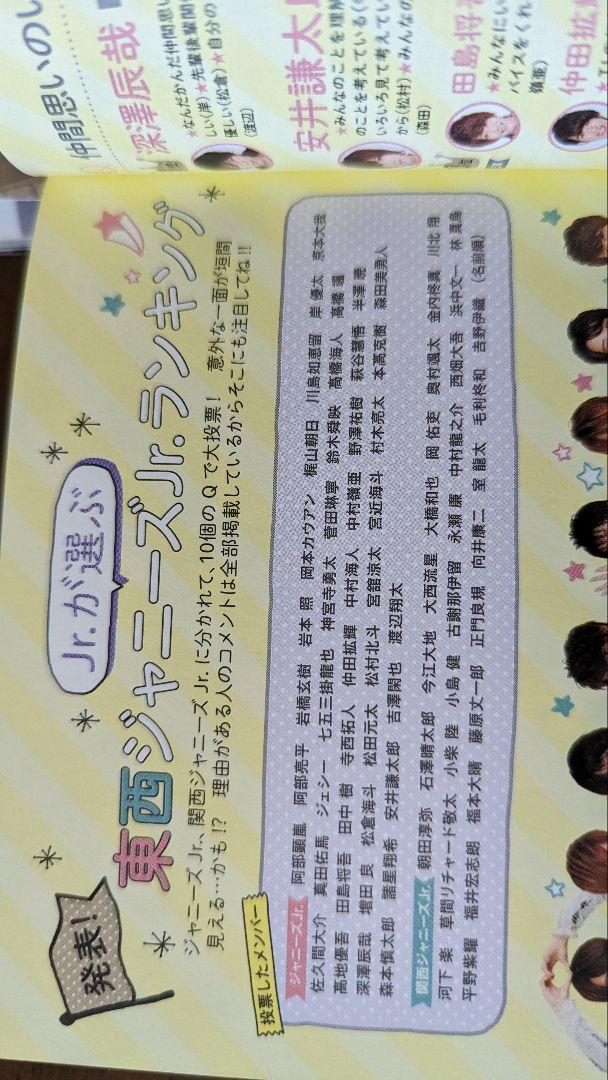 発表!
Jr.が選ぶ
東西ジャニーズJr.ランキング
ジャニーズJr.、関西ジャニーズJr.に分かれて、10個のQで大投票! 意外な一面が垣間
見える…かも!? 理由がある人のコメントは全部掲載しているからそこにも注目してね!!
投票したメンバー
ジャニーズJr. 阿部顕嵐 阿部亮平 岩橋玄樹 岩本 照 岡本カウアン 梶山朝日 川島如恵留 岸 優太 京本大我
佐久間大介 真田佑馬 ジェシー 七五三掛龍也 神宮寺勇太 菅田琳寧 鈴木舜映 髙橋海人 高橋 颯
髙地優吾 田島将吾 田中 樹 寺西拓人 仲田拡輝 中村海人 中村嶺亜 野澤祐樹 萩谷慧悟 半澤 暁
深澤辰哉 増田 良 松倉海斗 松田元太 松村北斗 宮舘涼太 宮近海斗 村木亮太 本髙克樹 森田美勇人
森本慎太郎 諸星翔希 安井謙太郎 吉澤閑也 渡辺翔太
関西ジャニーズJr. 朝田淳弥 石澤晴太郎 今江大地 大西流星 大橋和也 岡 佑吏 奥村颯太 金内柊真 川北 翔
河下 楽 草間リチャード敬太 小柴 陸 小島 健 古謝那伊留 永瀬 廉 中村龍之介 西畑大吾 浜中文一 林 真鳥
平野紫耀 福井宏志朗 福本大晴 藤原丈一郎 正門良規 向井康二 室 龍太 毛利柊和 吉野伊織 (名前順)
仲間思いのし
深澤辰哉
★なんだかんだ仲間思い
しい(岸)★先輩後輩関
優しい(松倉)★自分の
(渡辺)
安井謙太
★みんなのことを理解
のことを考えている(
いろいろ見て考えてい
から(松村)★みんなの
(森田)
田島将
★みんなにい
バイスをくれ
嶺亜)
仲田拡